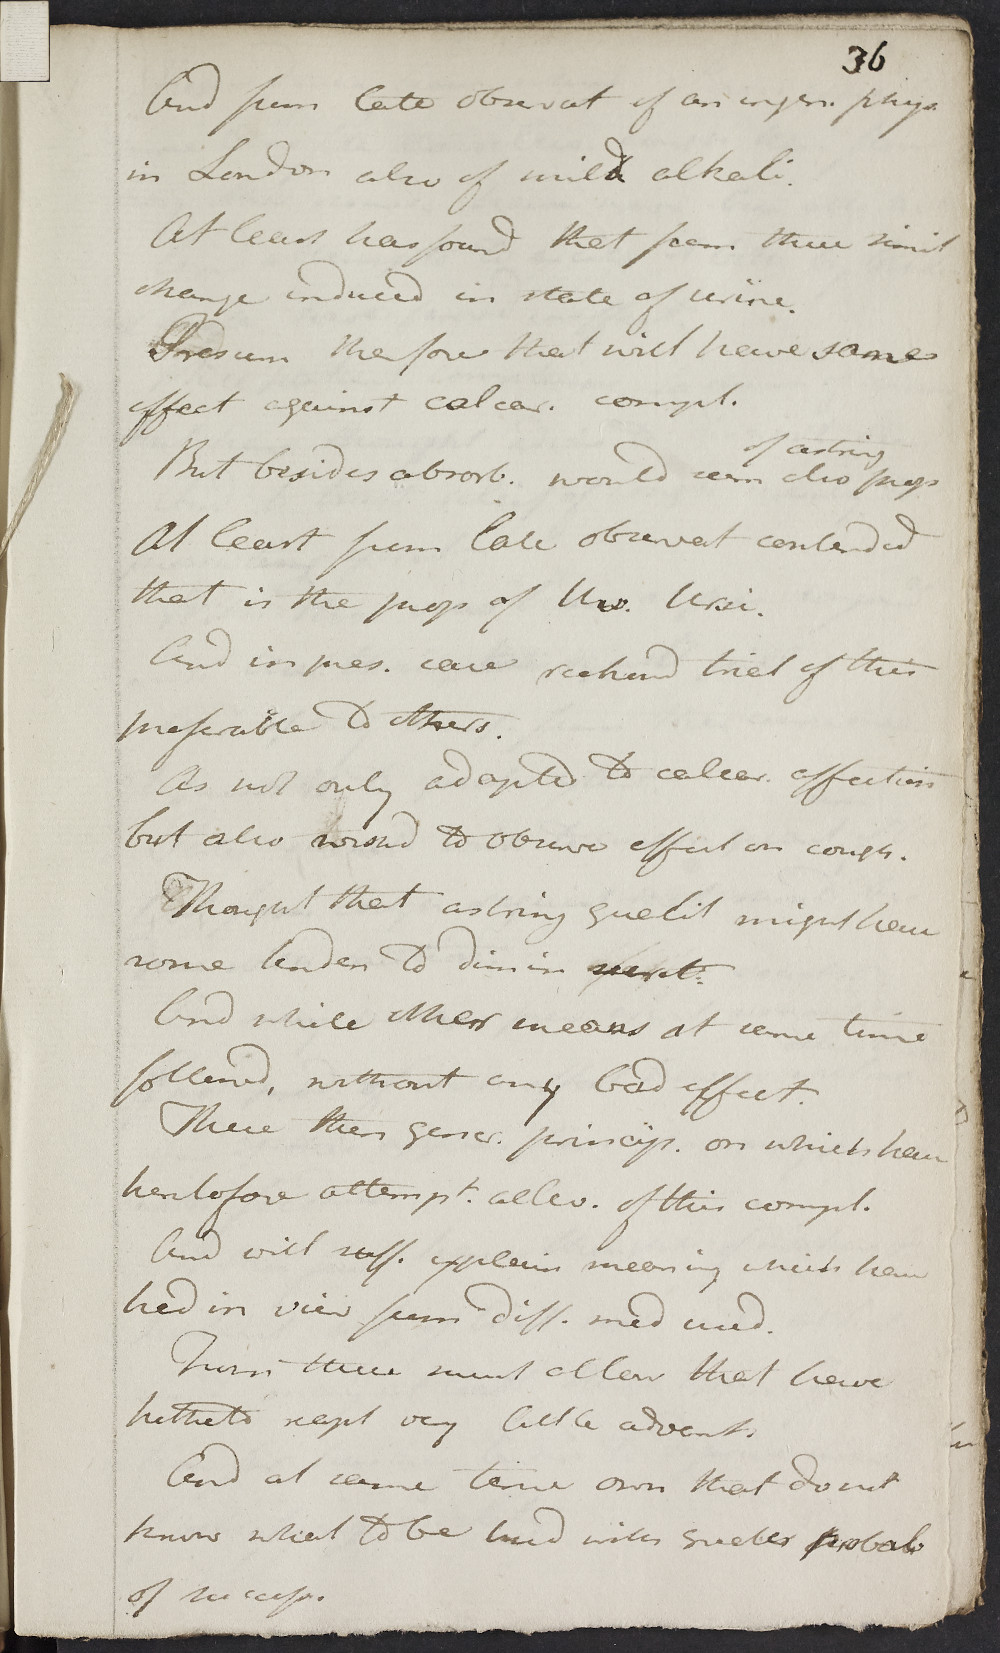 36
And from late observat of an ingen. phys.
in London also of mild alkali.
At least has found that from these simil
change induced in state of urine.
Presum therefore that will have same
effect against calcar. compl.
of astring
But besides absorb. would seem also prop
At least from late observat contended
that is the prop of Uv. Ursi.
And in pres. case reckond trial of this
preferable to others.
As not only adapted to calcar. affection
but also wishd to observe effect on cough.
Thought that astring qualit might have
some tenden to dimin
And while other means at same time
followd, without any bad effect.
These then gener. princip. on which have
heretofore attempt. allev. of this compl.
And will suff. explain meaning which have
had in view from diff. med used.
From these must allow that have
hitherto reapt very little advant.
And at same time own that do not
know what to be tried with greater probab
of success.